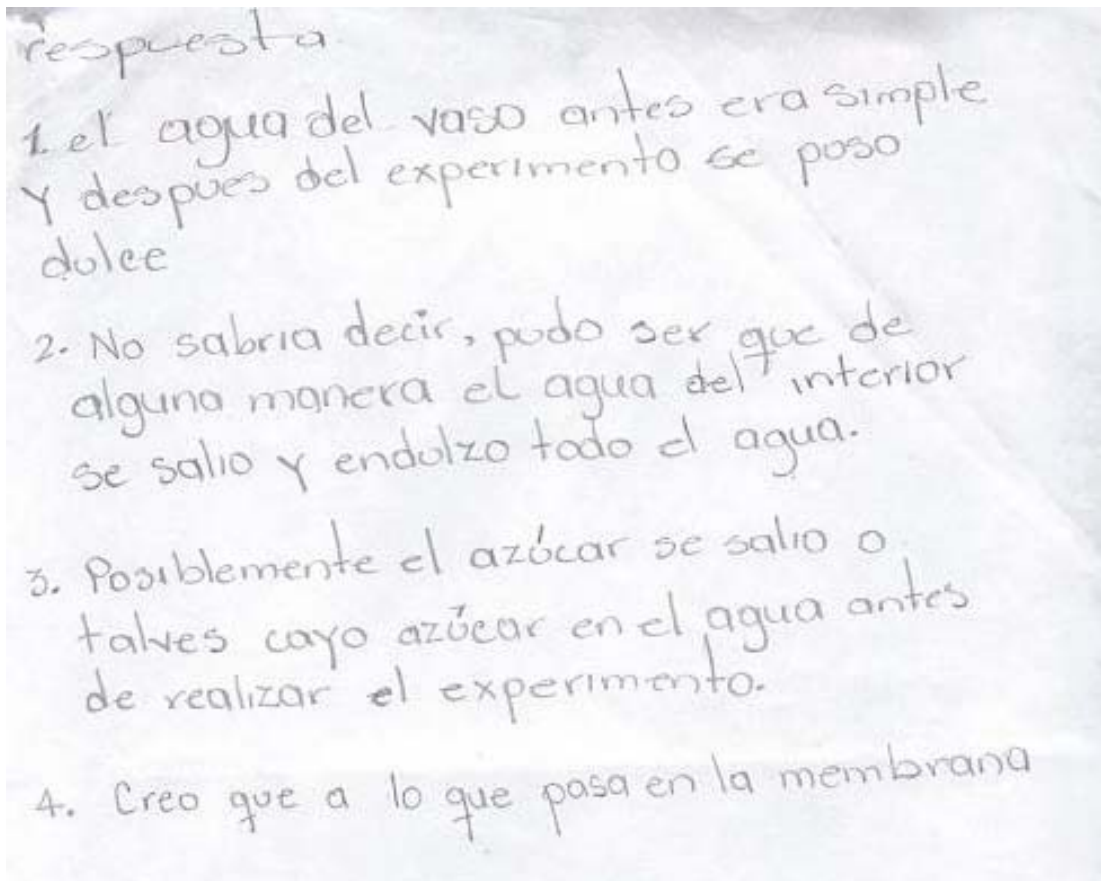 respuesta
1 el agua del vaso antes era simple
Y despues del experimento se poso
dulce
2. No sabria decir, pudo ser que de
alguna manera el agua del interior
se salio y endulzo todo el agua.
3. Posiblemente el azúcar se salio o
talves cayo azúcar en el agua antes
de realizar el experimento.
4. Creo que a lo que pasa en la membrana